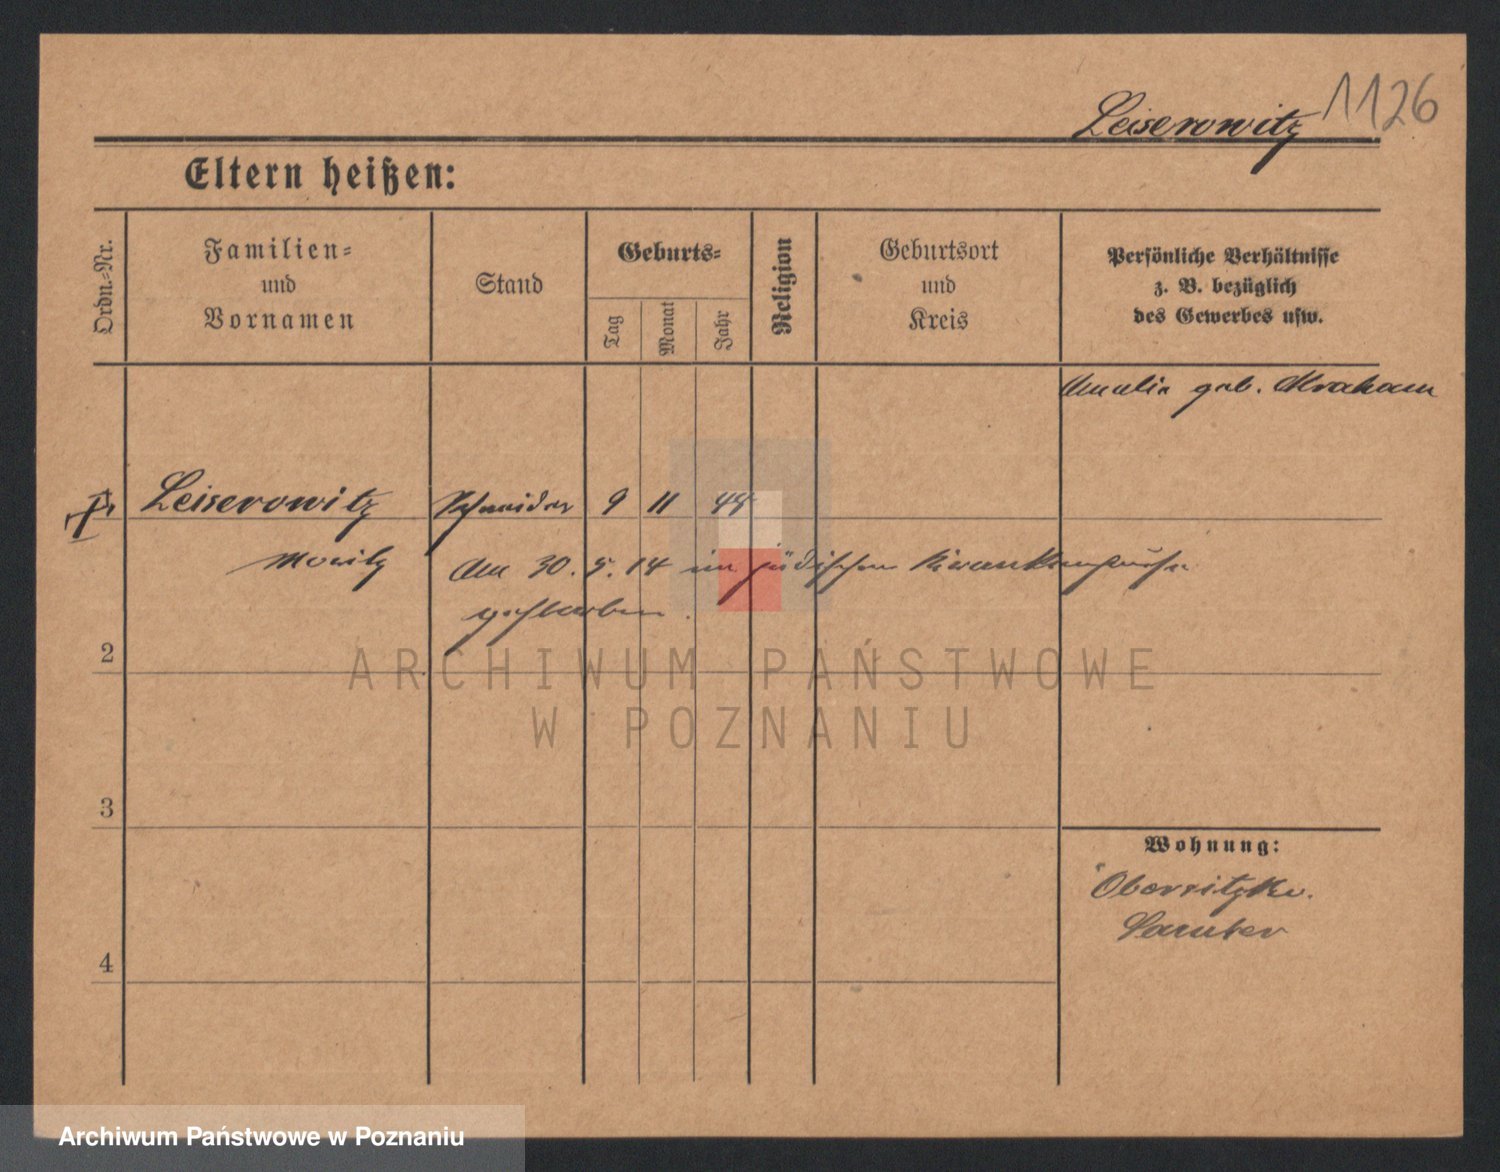 Leiserowitz 1126
Eltern heißen:
Ordn.-Nr.
Familien-
und
Vornamen
Stand
Geburts-
Tag
Monat
Jahr
Religion
Geburtsort
und
Kreis
Persönliche Verhältnisse
z. B. bezüglich
des Gewerbes usw.
Amalie geb. Abraham
Leiserowitz Schneider 9 11 48
Moritz
Am 30. 5. 14 im jüdischen Krankenhause
gestorben.
2
3
4
Wohnung:
Obersitzko.
Samter
ARCHIWUM PAŃSTWOWE
W POZNANIU
Archiwum Państwowe w Poznaniu